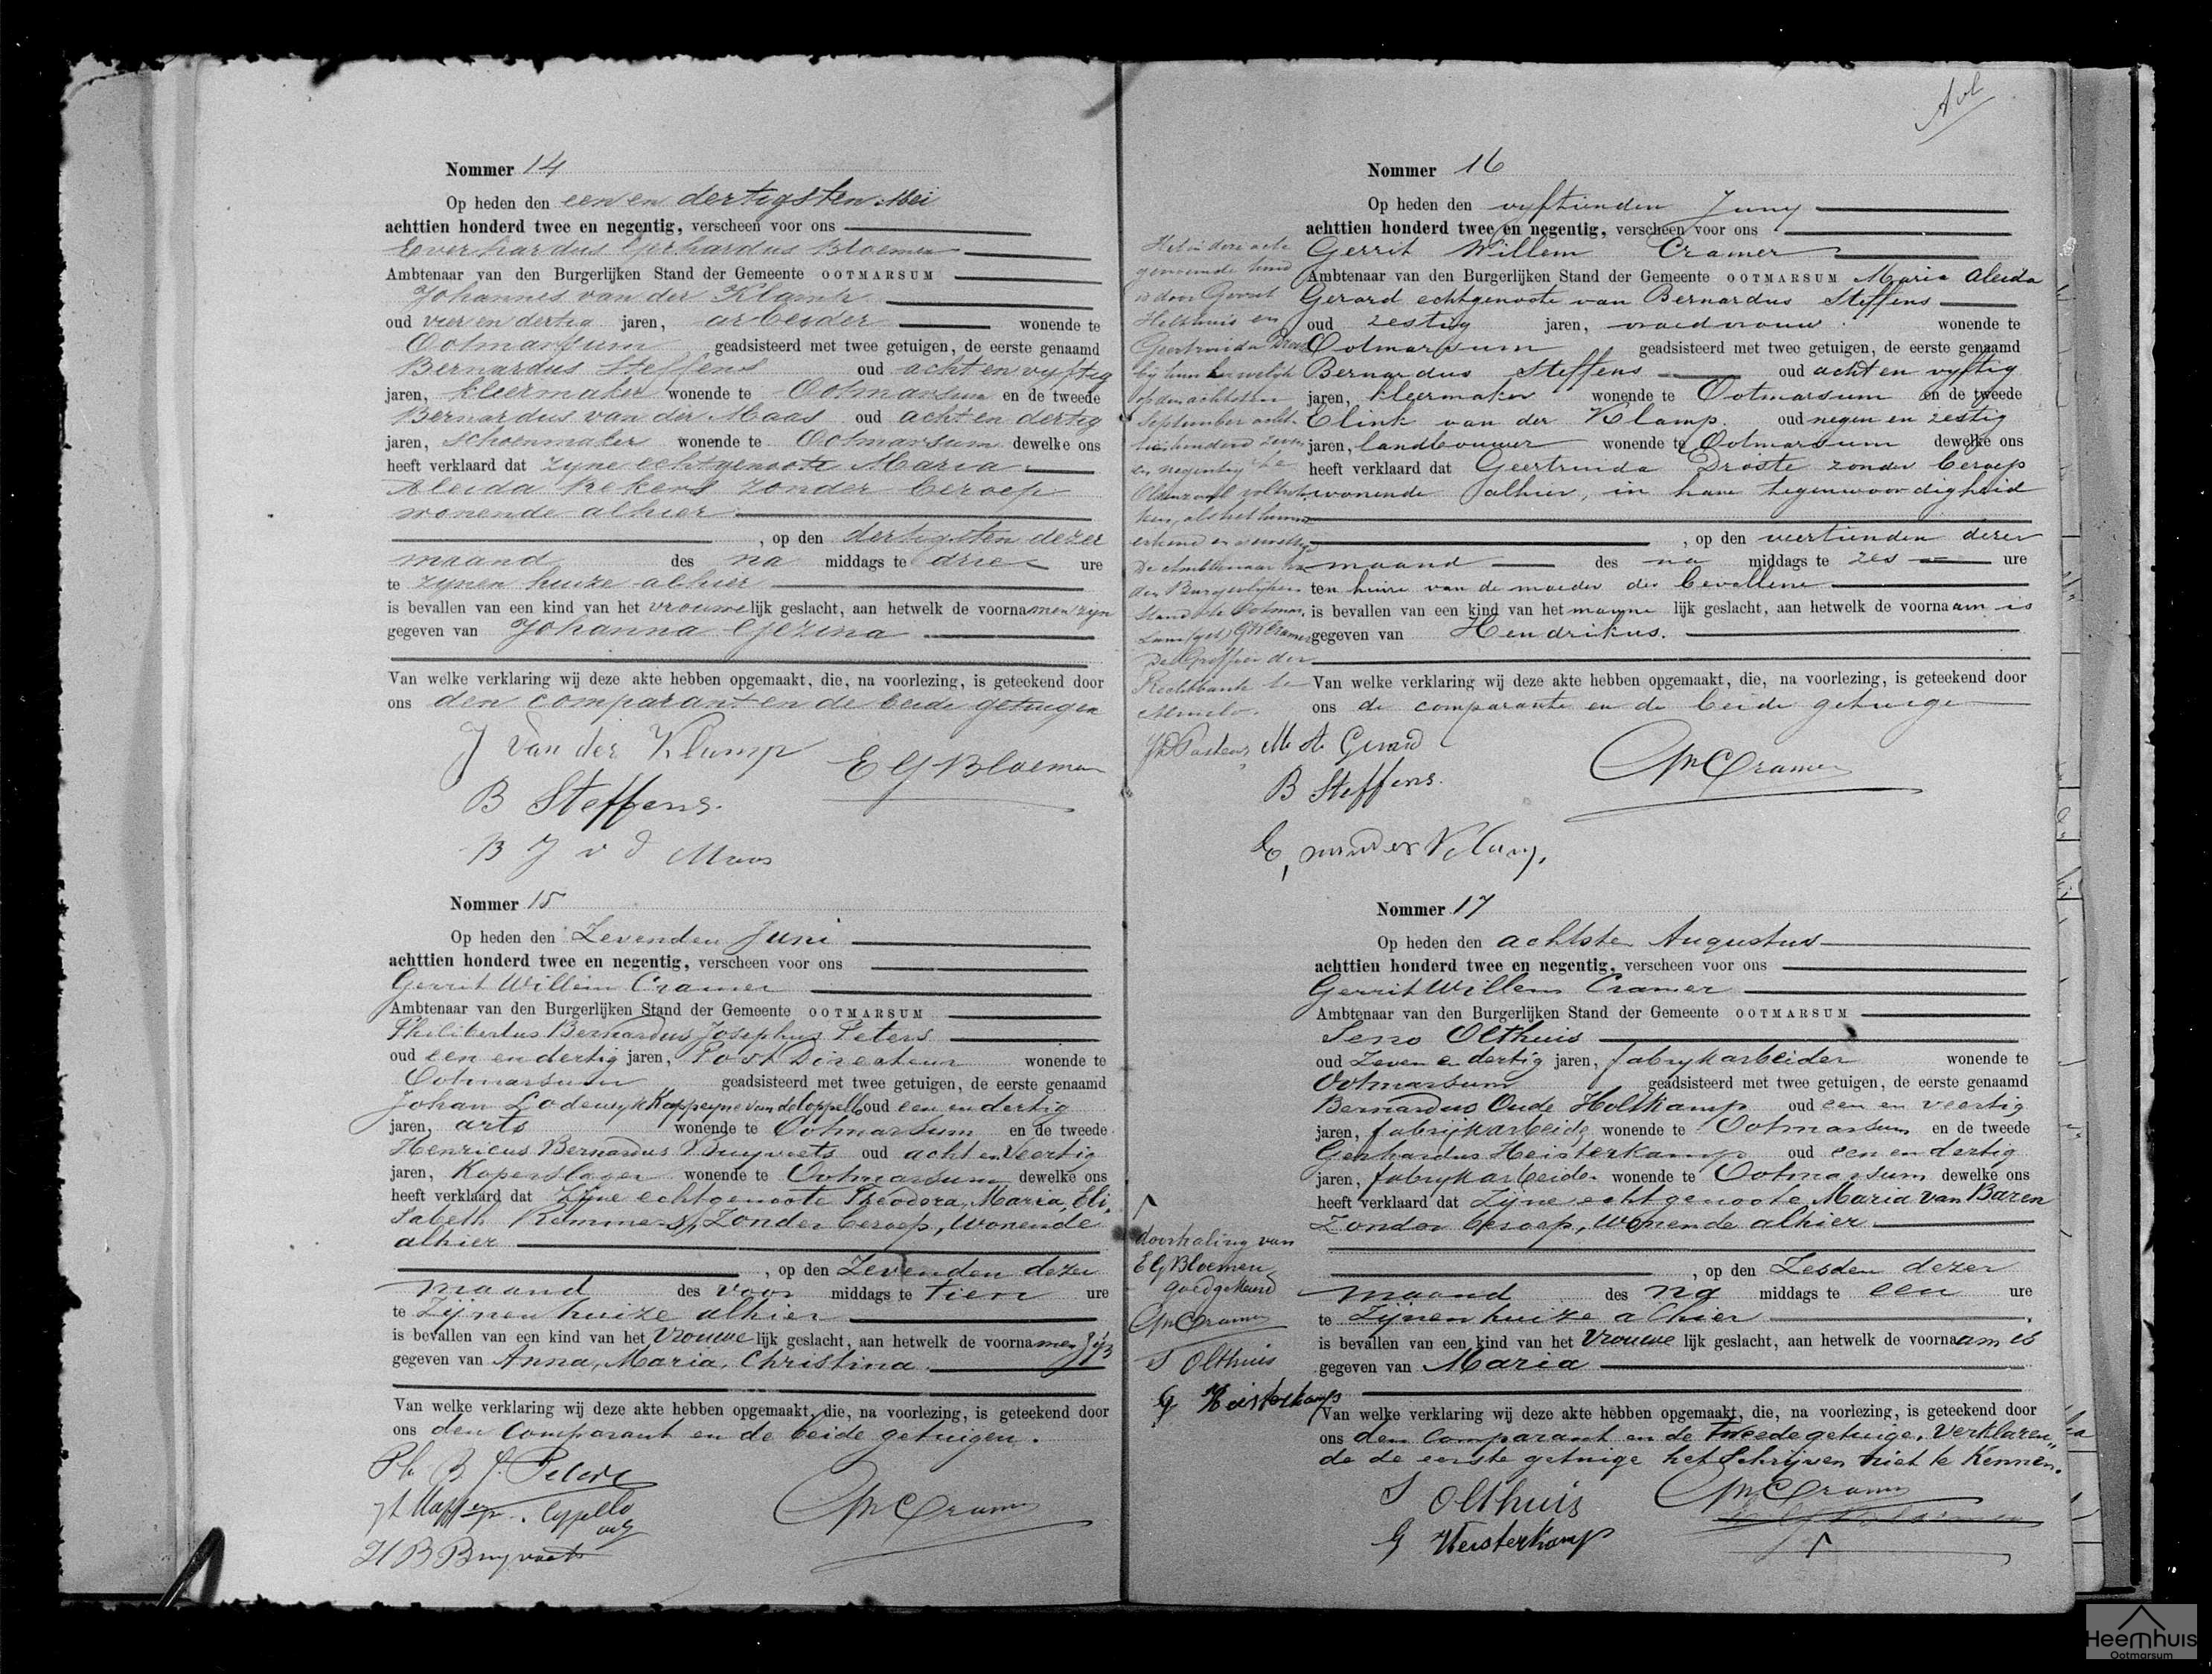 Nommer 14
Op heden den een en dertigsten Mei
achttien honderd twee en negentig, verscheen voor ons
Everhardus Gerhardus Bloemen
Ambtenaar van den Burgerlijken Stand der Gemeente OOTMARSUM
Johannes van der Klamp
oud vier en dertig jaren, arbeider wonende te
Ootmarsum geadsisteerd met twee getuigen, de eerste genaamd
Bernardus Steffens oud acht en vyftig
jaren, kleermaker wonende te Ootmarsum en de tweede
Bernardus van der Maas oud acht en dertig
jaren, schoenmaker wonende te Ootmarsum dewelke ons
heeft verklaard dat zyne echtgenoote Maria
Aleida Rekers zonder beroep
wonende alhier
, op den dertigsten dezer
maand des na middags te drie ure
te zynen huize alhier
is bevallen van een kind van het vrouwelijk geslacht, aan hetwelk de voornamen zyn
gegeven van Johanna Gezina
Van welke verklaring wij deze akte hebben opgemaakt, die, na voorlezing, is geteekend door
ons den comparant en de beide getuigen
J van der Klamp E G Bloemen
B Steffens.
B J v d Maas
Nommer 15
Op heden den Zevenden Juni
achttien honderd twee en negentig, verscheen voor ons
Gerrit Willem Cramer
Ambtenaar van den Burgerlijken Stand der Gemeente OOTMARSUM
Philibertus Bernardus Josephus Peters
oud een en dertig jaren, Post Directeur wonende te
Ootmarsum geadsisteerd met twee getuigen, de eerste genaamd
Johan Lodewyk Kappeyne van de Coppello oud een en dertig
jaren, arts wonende te Ootmarsum en de tweede
Henricus Bernardus Bruyvoets oud acht en Veertig
jaren, Koperslager wonende te Ootmarsum dewelke ons
heeft verklaard dat Zijne echtgenoote Theodora, Maria, Eli,
sabeth Rommers, Zonder beroep, Wonende
alhier
, op den Zevenden dezer
maand des voor middags te tien ure
te Zijnen huize alhier
is bevallen van een kind van het Vrouwelijk geslacht, aan hetwelk de voornamen zijn
gegeven van Anna, Maria, Christina
Van welke verklaring wij deze akte hebben opgemaakt, die, na voorlezing, is geteekend door
ons den Comparant en de beide getuigen.
Ph B. J. Peters
Cappello GWCramer
H B Bruyvoets
Avl
Nommer 16
Op heden den vyftienden Juny
achttien honderd twee en negentig, verscheen voor ons
Gerrit Willem Cramer
Ambtenaar van den Burgerlijken Stand der Gemeente OOTMARSUM Maria Aleida
Gerard echtgenoote van Bernardus Steffens
oud zestig jaren, vroedvrouw wonende te
Ootmarsum geadsisteerd met twee getuigen, de eerste genaamd
Bernardus Steffens oud acht en vyftig
jaren, kleermaker wonende te Ootmarsum en de tweede
Elink van der Klamp oud negen en zestig
jaren, landbouwer wonende te Ootmarsum dewelke ons
heeft verklaard dat Geertruida Droste zonder beroep
wonende alhier, in hare tegenwoordigheid
, op den veertienden dezer
maand des na middags te zes ure
ten huize van de moeder der bevallene
is bevallen van een kind van het mannelijk geslacht, aan hetwelk de voornaam is
gegeven van Hendrikus.
Van welke verklaring wij deze akte hebben opgemaakt, die, na voorlezing, is geteekend door
ons de comparante en de beide getuige
Het in deze acte
genoemde kind
is door Gerrit
Holthuis en
Geertruida Droste
bij hun huwelijk
op den achtsten
September acht-
tienhonderd zeven
en negentig te
Oldenzaal voltrok-
ken, als het hunne
erkend en gewettigd
De Ambtenaar van
den Burgerlijken
Stand te Ootmar-
sum (get) GWCramer
De Griffier der
Rechtbank te
Almelo.
M A Gerard GWCramer
B Steffens.
E, van der Klamp,
Nommer 17
Op heden den achtste Augustus
achttien honderd twee en negentig, verscheen voor ons
Gerrit Willem Cramer
Ambtenaar van den Burgerlijken Stand der Gemeente OOTMARSUM
Seno Olthuis
oud Zeven en dertig jaren, fabrykarbeider wonende te
Ootmarsum geadsisteerd met twee getuigen, de eerste genaamd
Bernardus Oude Holtkamp oud een en veertig
jaren, fabrijkarbeider wonende te Ootmarsum en de tweede
Gerhardus Heisterkamp oud een en dertig
jaren, fabrykarbeider wonende te Ootmarsum dewelke ons
heeft verklaard dat Zijne echtgenoote Maria van Baren
Zonder beroep, Wonende alhier
, op den Zesden dezer
maand des na middags te een ure
te Zijnen huize alhier
is bevallen van een kind van het Vrouwelijk geslacht, aan hetwelk de voornaam is
gegeven van Maria
Van welke verklaring wij deze akte hebben opgemaakt, die, na voorlezing, is geteekend door
ons den Comparant en de tweede getuige, Verklaren,,
de de eerste getuige het Schrijven niet te Kennen.
doorhaling van
E G Bloemen
goedgekeurd
GWCramer
S Olthuis
G Heisterkamp
S Olthuis GWCramer
G Heisterkamp
Heemhuis
Ootmarsum